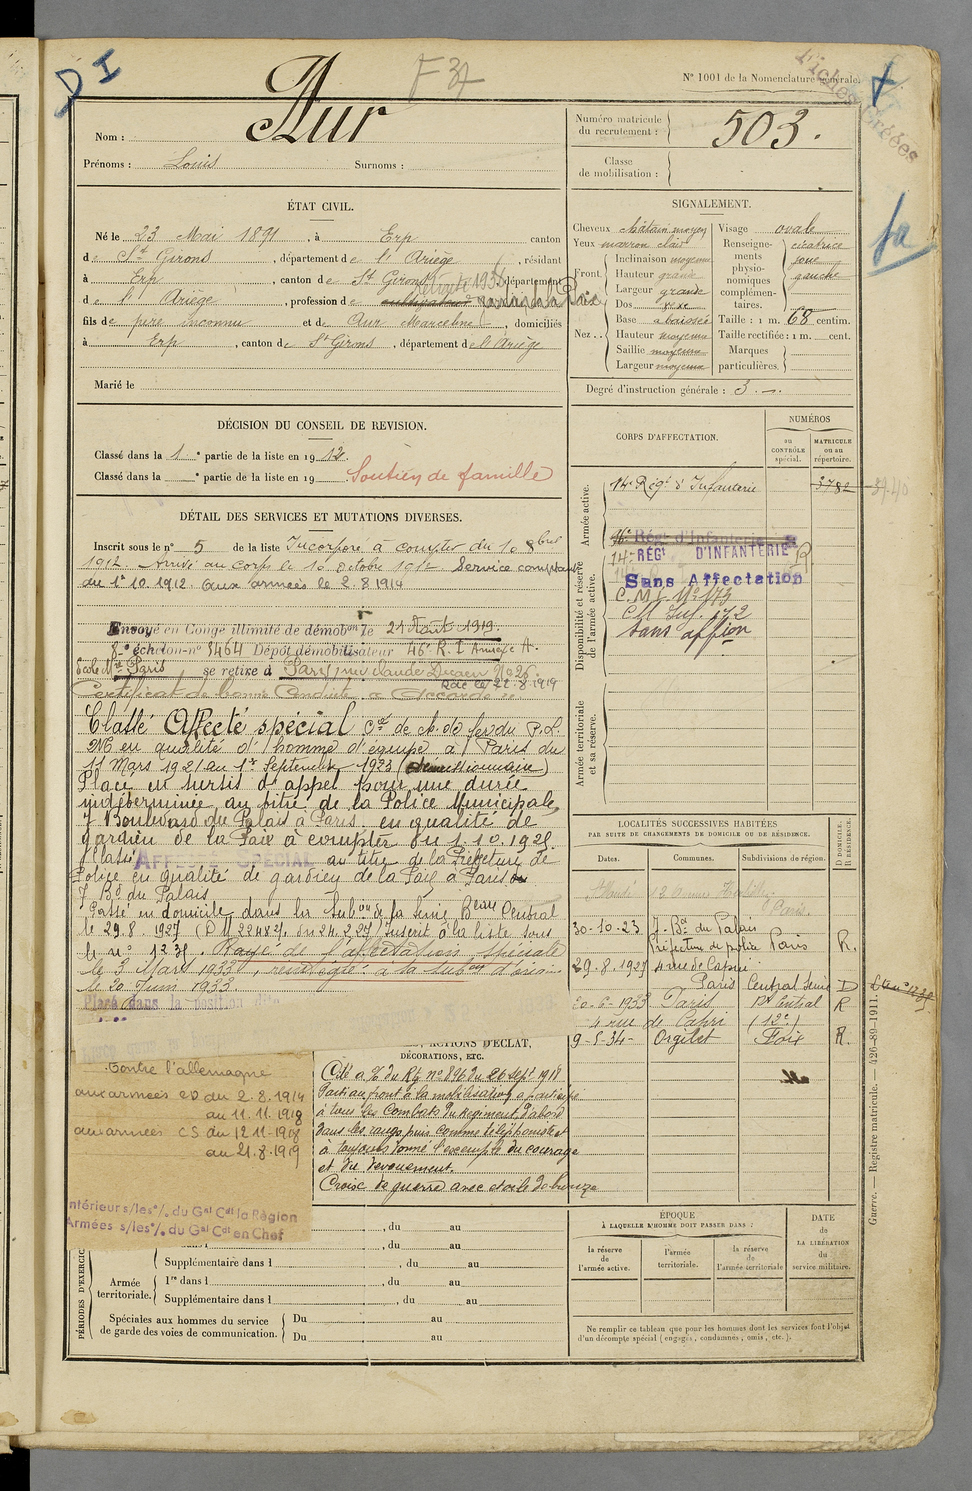 D I
F 37
N° 1001 de la Nomenclature générale.
Fiches créées
Nom : Aur
Prénoms : Louis Surnoms :
Numéro matricule du recrutement : 503.
Classe de mobilisation :
ÉTAT CIVIL.
Né le 23 Mai 1891, à Erp canton
de St Girons, département de l'Ariège, résidant
à Erp, canton de St Girons, département
Retraité 1938
de l'Ariège, profession de cultivateur gardien de la Paix
fils de père inconnu et de Aur Marceline, domiciliés
à Erp, canton de St Girons, département de l'Ariège
Marié le
SIGNALEMENT.
Cheveux châtain moyen
Yeux marron clair
Front. Inclinaison moyenne
Hauteur grande
Largeur grande
Nez... Dos vexe
Base abaissée
Hauteur moyenne
Saillie moyenne
Largeur moyenne
Visage ovale
Renseignements physionomiques complémentaires. cicatrice joue gauche
Taille : 1 m. 68 centim.
Taille rectifiée : 1 m. cent.
Marques particulières.
Degré d'instruction générale : 3
DÉCISION DU CONSEIL DE REVISION.
Classé dans la 1e partie de la liste en 1912.
Classé dans la e partie de la liste en 19 Soutien de famille
DÉTAIL DES SERVICES ET MUTATIONS DIVERSES.
Inscrit sous le n° 5 de la liste Incorporé à compter du 10 8bre
1912. Arrivé au corps le 10 Octobre 1912. Service comptant
du 1er 10 1912. Aux armées le 2.8.1914
Envoyé en Congé illimité de démobon le 21 Août 1919.
8e échelon n° 8464 Dépôt démobilisateur 46e R. I. Annexe A.
Ecole Mre Paris se retire à Paris, rue Claude Decaen N° 26.
RdC le 22.8.1919
Certificat de bonne Conduite Accordé
Classé Affecté spécial Cie de ch. de fer du P.L.
M en qualité d'homme d'équipe à Paris du
11 Mars 1921 au 1er Septembre 1923 (démissionnaire)
Placé en sursis d'appel pour une durée
indéterminée au titre de la Police Municipale,
7 Boulevard du Palais à Paris en qualité de
gardien de la Paix à compter du 1.10.1925.
Classé AFFECTÉ SPÉCIAL au titre de la Préfecture de
Police en qualité de gardien de la Paix à Paris
7 Bd du Palais
Passé en domicile dans la Subon de la Seine Beau Central
le 29.8.1927 (DM 2248 2/ du 24.2.27) Inscrit à la liste sous
le n° 1235. Rayé de l'affectation spéciale
le 3 Mars 1933, réintégré à la subon d'origine
le 20 Juin 1933.
Placé dans la position dite
Contre l'allemagne
aux armées CD du 2.8.1914
au 11.11.1918
aux armées CS du 12.11.1918
au 21.8.1919
Intérieur s/les % du Gal Cdt la Région
Armées s/les % du Gal Cdt en Chef
CORPS D'AFFECTATION.
NUMÉROS
au CONTRÔLE spécial.
MATRICULE ou au répertoire.
Armée active.
14e Régt d'Infanterie 3782
Disponibilité et réserve de l'armée active.
Régt d'Infanterie
14e RÉGT D'INFANTERIE R
Sans Affectation
C.M.I. N° 173
CM Inf. 172
sans affion
Armée territoriale et sa réserve.
LOCALITÉS SUCCESSIVES HABITÉES
PAR SUITE DE CHANGEMENTS DE DOMICILE OU DE RÉSIDENCE.
Dates. Communes. Subdivisions de région. D DOMICILE. R RÉSIDENCE.
Paris.
30-10-23 7. Bd du Palais
Préfecture de police Paris R.
29.8.1927 4 rue de Capri
Paris Central Seine D
20-6-1933 Paris Central R
4 rue de Capri (12e)
9-5-34- Orgibet Foix R.
ACTIONS D'ÉCLAT,
DÉCORATIONS, ETC.
Cité à l'O. du Rgt n° 896 du 26 sept. 1918
Parti au front à la mobilisation, a participé
à tous les combats du régiment d'abord
dans les rangs puis comme téléphoniste et
a toujours donné l'exemple du courage
et du dévouement.
Croix de guerre avec étoile de bronze
PÉRIODES D'EXERCICES
, du au
, du au
Supplémentaire dans l , du au
Armée territoriale. 1re dans l , du au
Supplémentaire dans l , du au
Spéciales aux hommes du service de garde des voies de communication. Du au
Du au
ÉPOQUE
À LAQUELLE L'HOMME DOIT PASSER DANS :
la réserve de l'armée active.
l'armée territoriale.
la réserve de l'armée territoriale
DATE de LA LIBÉRATION du service militaire.
Ne remplir ce tableau que pour les hommes dont les services font l'objet
d'un décompte spécial (engagés, condamnés, omis, etc.).
Guerre. — Registre matricule. — 426-89-1911.